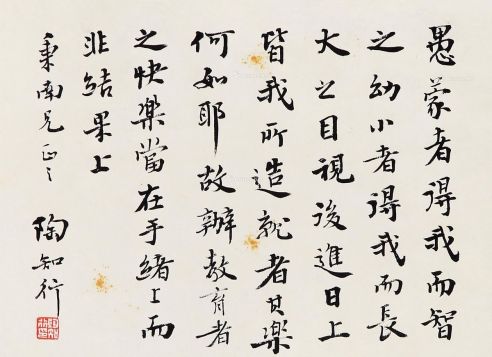 愚蒙者得我而智
之幼小者得我而長
大之目視後進日上
皆我所造就者其樂
何如耶故辦教育者
之快樂當在手緒上而
非結果上
秉南兄正之
陶知行